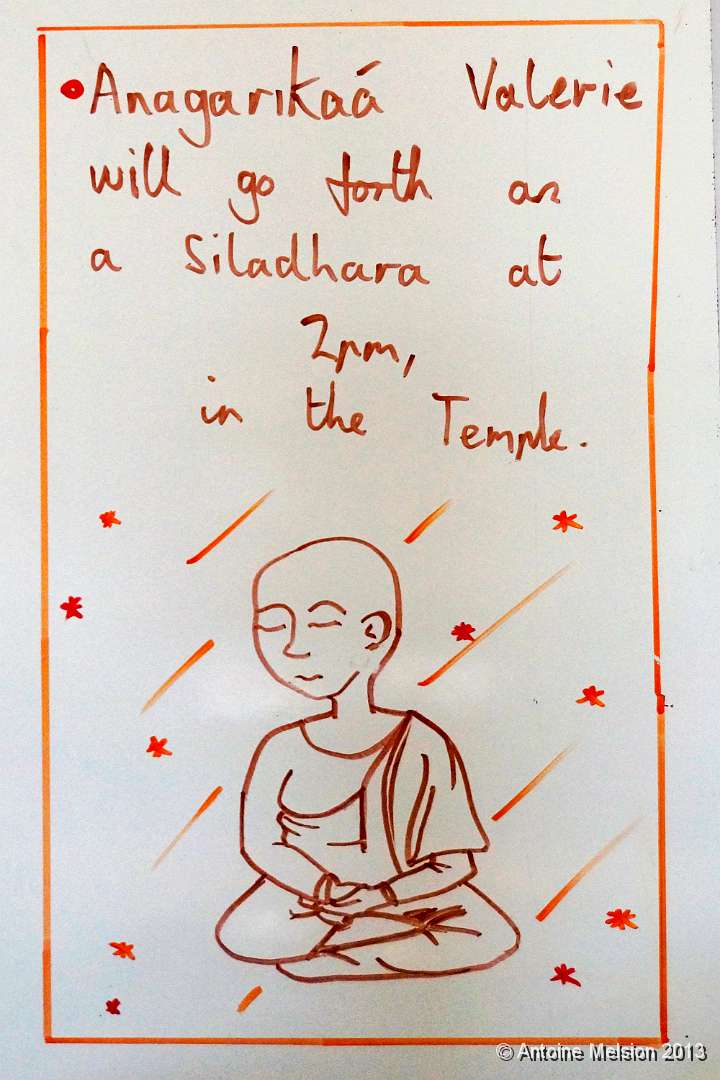 Anagarikaá Valerie
will go forth as
a Siladhara at
2pm,
in the Temple.
© Antoine Melsion 2013